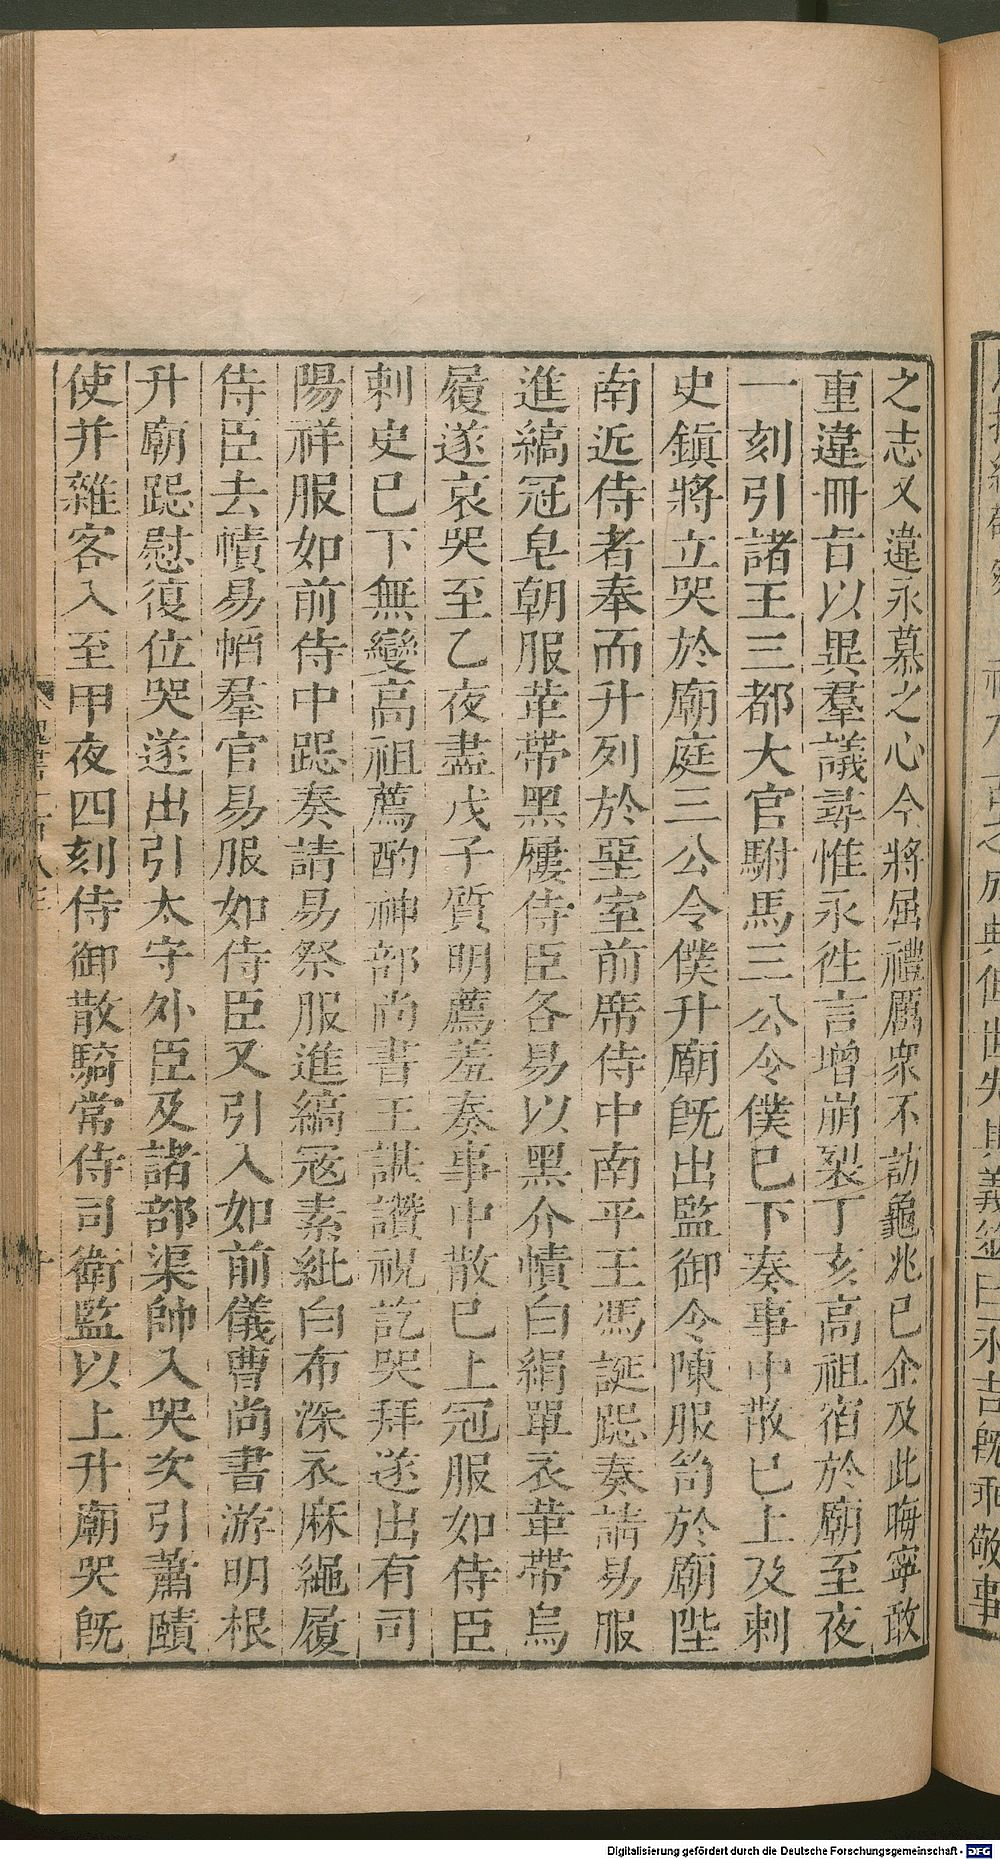 之志又違永慕之心今將屈禮厲衆不訪龜兆已企及此晦寧敢
重違冊旨以異羣議尋惟永徃言增崩裂丁亥高祖宿於廟至夜
一刻引諸王三都大官駙馬三公令僕已下奏事中散已上及刺
史鎮將立哭於廟庭三公令僕升廟旣出監御令陳服笥於廟陛
南近侍者奉而升列於堊室前席侍中南平王馮誕跽奏請易服
進縞冠皂朝服革帶黑屨侍臣各易以黑介幘白絹單衣革帶烏
履遂哀哭至乙夜盡戊子質明薦羞奏事中散已上冠服如侍臣
刺史已下無變高祖薦酌神部尚書王諶讚祝訖哭拜遂出有司
陽祥服如前侍中跽奏請易祭服進縞冠素紕白布深衣麻繩履
侍臣去幘易㡌羣官易服如侍臣又引入如前儀曹尚書游明根
升廟跽慰復位哭遂出引太守外臣及諸部渠帥入哭次引蕭賾
使并雜客入至甲夜四刻侍御散騎常侍司衛監以上升廟哭旣
Digitalisierung gefördert durch die Deutsche Forschungsgemeinschaft - DFG